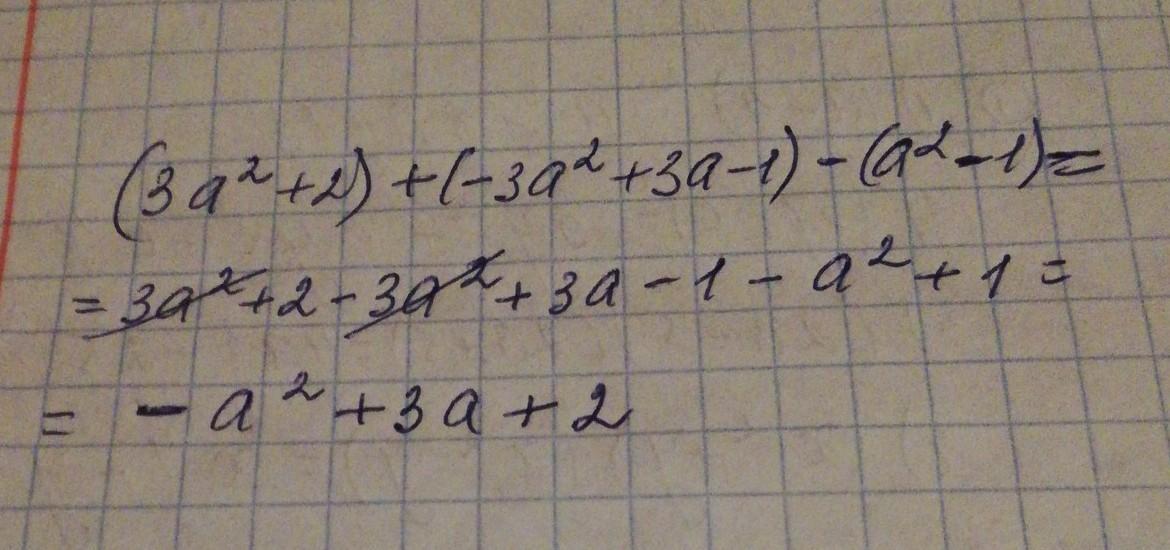 (3a²+2)+(-3a²+3a-1)-(a²-1)=
=3a²+2-3a²+3a-1-a²+1=
= -a²+3a+2